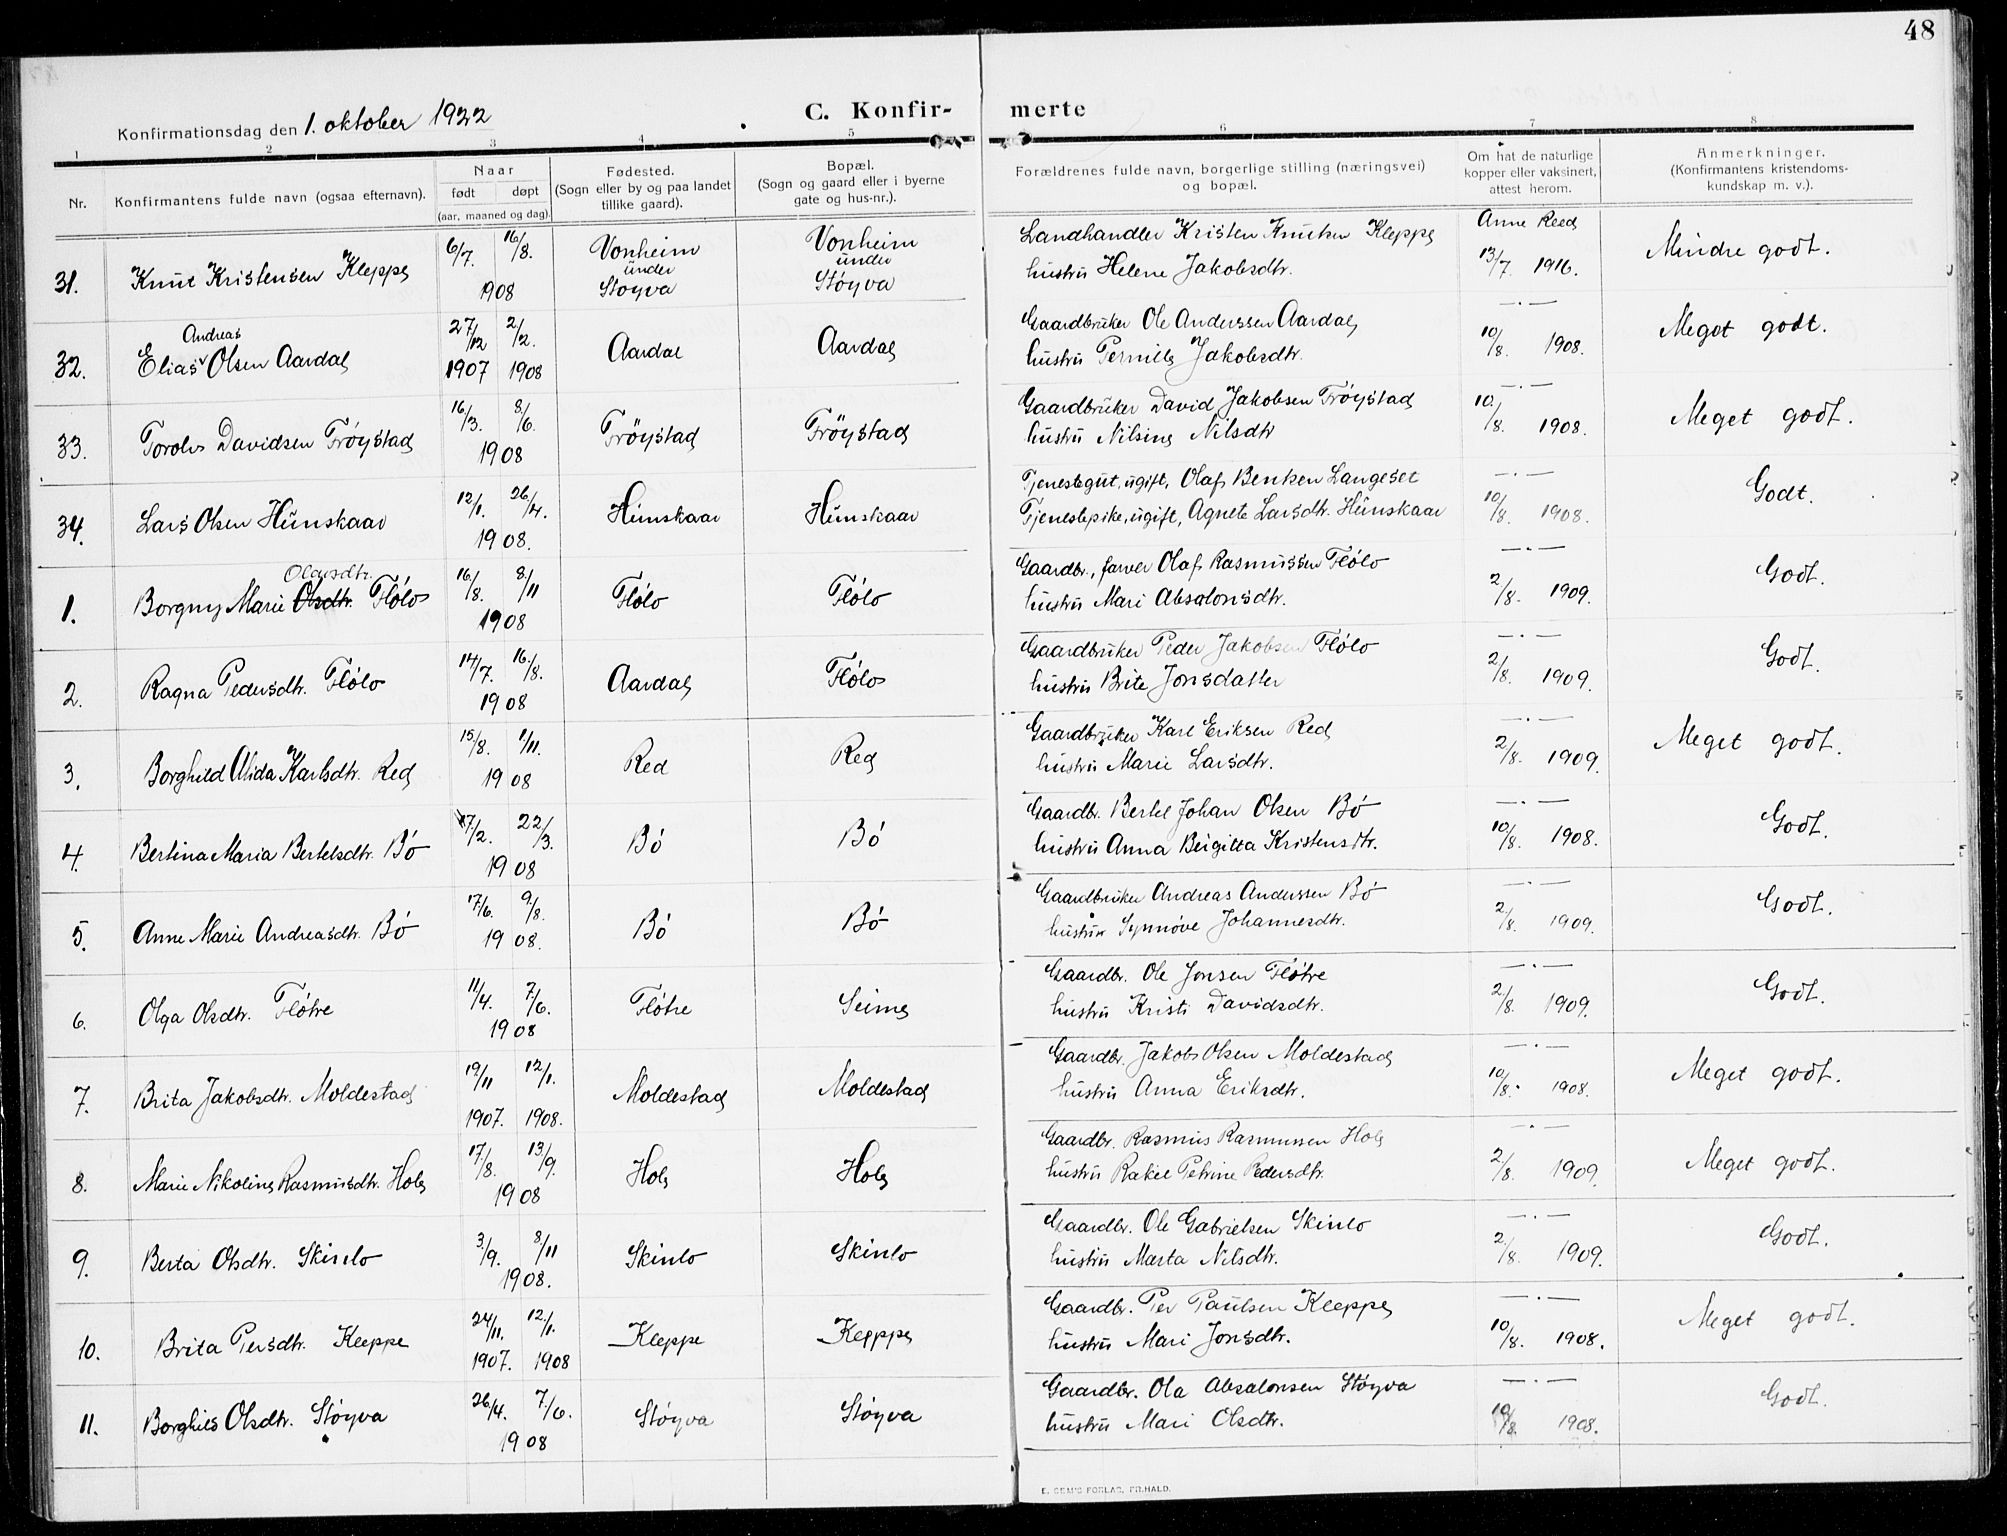 48
Konfirmationsdag den 1. oktober 1922
C. Konfir- merte
1 2 3 4 5 6 7 8
Nr. Konfirmantens fulde navn (ogsaa efternavn). Naar født døpt (aar, maaned og dag). Fødested. (Sogn eller by og paa landet tillike gaard). Bopæl. (Sogn og gaard eller i byerne gate og hus-nr.). Forældrenes fulde navn, borgerlige stilling (næringsvei) og bopæl. Om hat de naturlige kopper eller vaksinert, attest herom. Anmerkninger. (Konfirmantens kristendoms- kundskap m. v.).
31. Knut Kristensen Kleppe 6/7. 16/8. 1908 Vonheim under Støyva Vonheim under Støyva Landhandler Kristen Knutsen Kleppe Anne Reed Mindre godt.
hustru Helene Jakobsdtr. 13/7 1916.
32. Elias Andreas Olsen Aardal 27/12 1907 2/2. 1908 Aardal Aardal Gaardbruker Ole Anderssen Aardal — . — Meget godt.
hustru Pernille Jakobsdtr. 10/8. 1908.
33. Torolv Davidsen Frøystad 16/3. 8/6. 1908 Frøystad Frøystad Gaardbruker David Jakobsen Frøystad — . — Meget godt.
hustru Nilsine Nilsdtr 10/8. 1908.
34. Lars Olsen Hunskaar 12/1. 26/4. 1908. Hunskaar Hunskaar Tjenestegut, ugift, Olaf Bentsen Langeset — . — Godt.
Tjenestepike, ugift, Agnete Larsdtr. Hunskaar 10/8. 1908.
1. Borgny Marie Olsdtr. Olavsdtr. Flólo 16/8. 8/11 1908 Flólo Flólo Gaardbr., farver Olaf Rasmussen Flólo — . — Godt.
hustru Mari Absalonsdtr. 2/8. 1909.
2. Ragna Pedersdtr. Flólo 14/7. 16/8. 1908 Aardal Flólo Gaardbruker Peder Jakobsen Flólo — . — Godt.
hustru Brite Jonsdatter 2/8. 1909.
3. Borghild Alida Karlsdtr. Red 15/8. 1/11. 1908 Red Red Gaardbruker Karl Eriksen Red — . — Meget godt.
hustru Marie Larsdtr. 2/8. 1909.
4. Bertina Maria Bertelsdtr. Bó 17/2. 22/3. 1908 Bó Bó Gaardbr. Bertel Johan Olsen Bó — . — Godt.
hustru Anna Birgitta Kristensdtr. 10/8. 1908.
5. Anne Marie Andreasdtr. Bó 17/6. 9/8. 1908. Bó Bó Gaardbruker Andreas Anderssen Bó — . — Godt.
hustru Synnøve Johannesdtr. 2/8. 1909.
6. Olga Olsdtr. Flótre 11/4. 7/6. 1908 Flótre Seime Gaardbr. Ole Jonsen Flótre — . — Godt.
hustru Kristi Davidsdtr. 2/8. 1909.
7. Brita Jakobsdtr. Moldestad 19/11 1907. 12/1. 1908. Moldestad Moldestad Gaardbr. Jakob Olsen Moldestad — . — Meget godt.
hustru Anna Eriksdtr. 10/8. 1908.
8. Marie Nikoline Rasmusdtr. Hole 17/8. 13/9. 1908 Hole Hole Gaardbr. Rasmus Rasmussen Hole — . — Meget godt.
hustru Rakel Petrine Pedersdtr. 2/8. 1909.
9. Berta Olsdtr. Skinlo 3/9. 8/11 1908. Skinlo Skinlo Gaardbr. Ole Gabrielsen Skinlo — . — Godt.
hustru Marta Nilsdtr. 2/8. 1909.
10. Brita Persdtr. Kleppe 24/11. 1907. 12/1. 1908 Kleppe Kepppe Gaardbr. Per Paulsen Kleppe — . — Meget godt.
hustru Mari Jonsdtr. 10/8. 1908.
11. Borghild Olsdtr. Støyva 26/4. 7/6. 1908 Støyva Støyva Gaardbr. Ola Absalonsen Støyva — . — Godt.
hustru Mari Olsdtr. 10/8. 1908.
E. SEM'S FORLAG, FR.HALD.